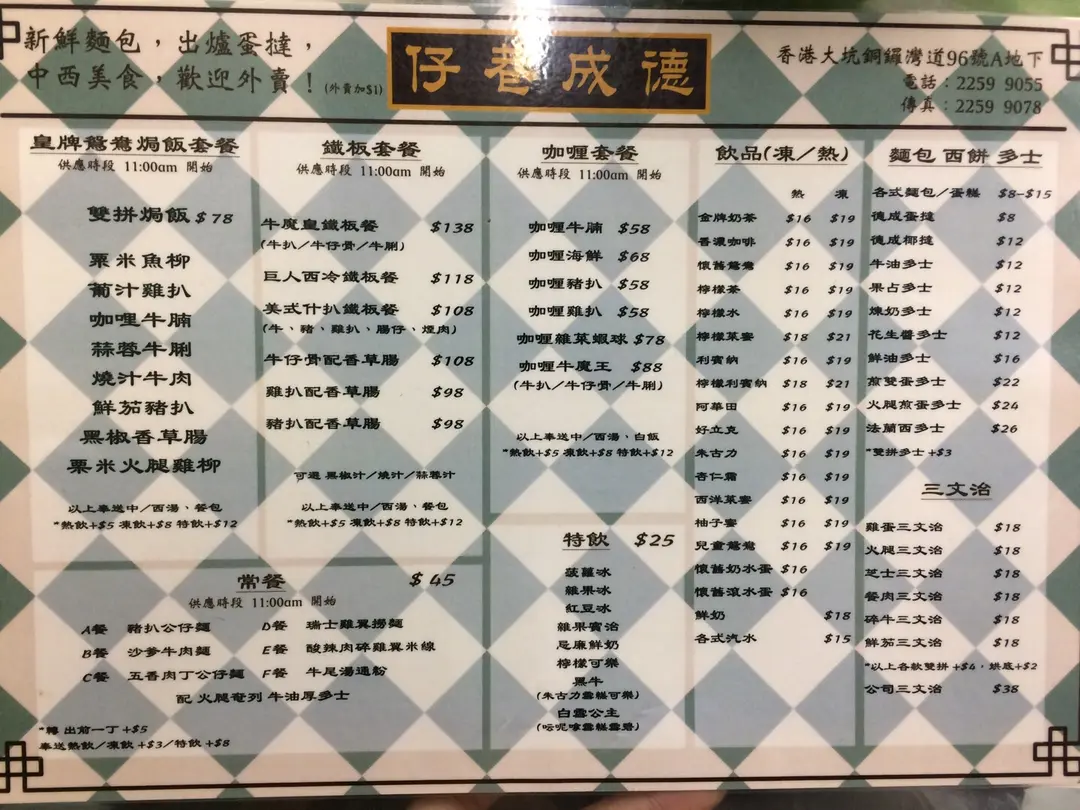 新鮮麵包，出爐蛋撻，
中西美食，歡迎外賣！(外賣加$1)
仔巷成德
香港大坑銅鑼灣道96號A地下
電話：2259 9055
傳真：2259 9078
皇牌鴛鴦焗飯套餐
供應時段 11:00am 開始
雙拼焗飯 $78
粟米魚柳
葡汁雞扒
咖哩牛腩
蒜蓉牛脷
燒汁牛肉
鮮茄豬扒
黑椒香草腸
粟米火腿雞柳
以上奉送中/西湯、餐包
*熱飲+$5 凍飲+$8 特飲+$12
鐵板套餐
供應時段 11:00am 開始
牛魔皇鐵板餐 $138
(牛扒/牛仔骨/牛脷)
巨人西冷鐵板餐 $118
美式什扒鐵板餐 $108
(牛、豬、雞扒、腸仔、煙肉)
牛仔骨配香草腸 $108
雞扒配香草腸 $98
豬扒配香草腸 $98
可選 黑椒汁/燒汁/蒜蓉汁
以上奉送中/西湯、餐包
*熱飲+$5 凍飲+$8 特飲+$12
咖喱套餐
供應時段 11:00am 開始
咖喱牛腩 $58
咖喱海鮮 $68
咖喱豬扒 $58
咖喱雞扒 $58
咖喱雜菜蝦球 $78
咖喱牛魔王 $88
(牛扒/牛仔骨/牛脷)
以上奉送中/西湯、白飯
*熱飲+$5 凍飲+$8 特飲+$12
特飲 $25
菠蘿冰
雜果冰
紅豆冰
雜果賓治
忌廉鮮奶
檸檬可樂
黑牛
(朱古力雪糕可樂)
白雪公主
(呍呢嗱雪糕雪碧)
飲品(凍/熱)
熱 凍
金牌奶茶 $16 $19
香濃咖啡 $16 $19
懷舊鴛鴦 $16 $19
檸檬茶 $16 $19
檸檬水 $16 $19
檸檬菜蜜 $18 $21
利賓納 $16 $19
檸檬利賓納 $18 $21
阿華田 $16 $19
好立克 $16 $19
朱古力 $16 $19
杏仁霜 $16 $19
西洋菜蜜 $16 $19
柚子蜜 $16 $19
兒童鴛鴦 $16 $19
懷舊奶水蛋 $16
懷舊滾水蛋 $16
鮮奶 $18
各式汽水 $15
麵包 西餅 多士
各式麵包/蛋糕 $8-$15
德成蛋撻 $8
德成椰撻 $12
牛油多士 $12
果占多士 $12
煉奶多士 $12
花生醬多士 $12
鮮油多士 $16
煎雙蛋多士 $22
火腿煎蛋多士 $24
法蘭西多士 $26
*雙拼多士+$3
三文治
雞蛋三文治 $18
火腿三文治 $18
芝士三文治 $18
餐肉三文治 $18
碎牛三文治 $18
鮮茄三文治 $18
*以上各款雙拼+$4，烘底+$2
公司三文治 $38
常餐 $45
供應時段 11:00am 開始
A餐 豬扒公仔麵 D餐 瑞士雞翼撈麵
B餐 沙爹牛肉麵 E餐 酸辣肉碎雞翼米線
C餐 五香肉丁公仔麵 F餐 牛尾湯通粉
配 火腿奄列 牛油厚多士
*轉 出前一丁+$5
奉送熱飲/凍飲+$3/特飲+$8